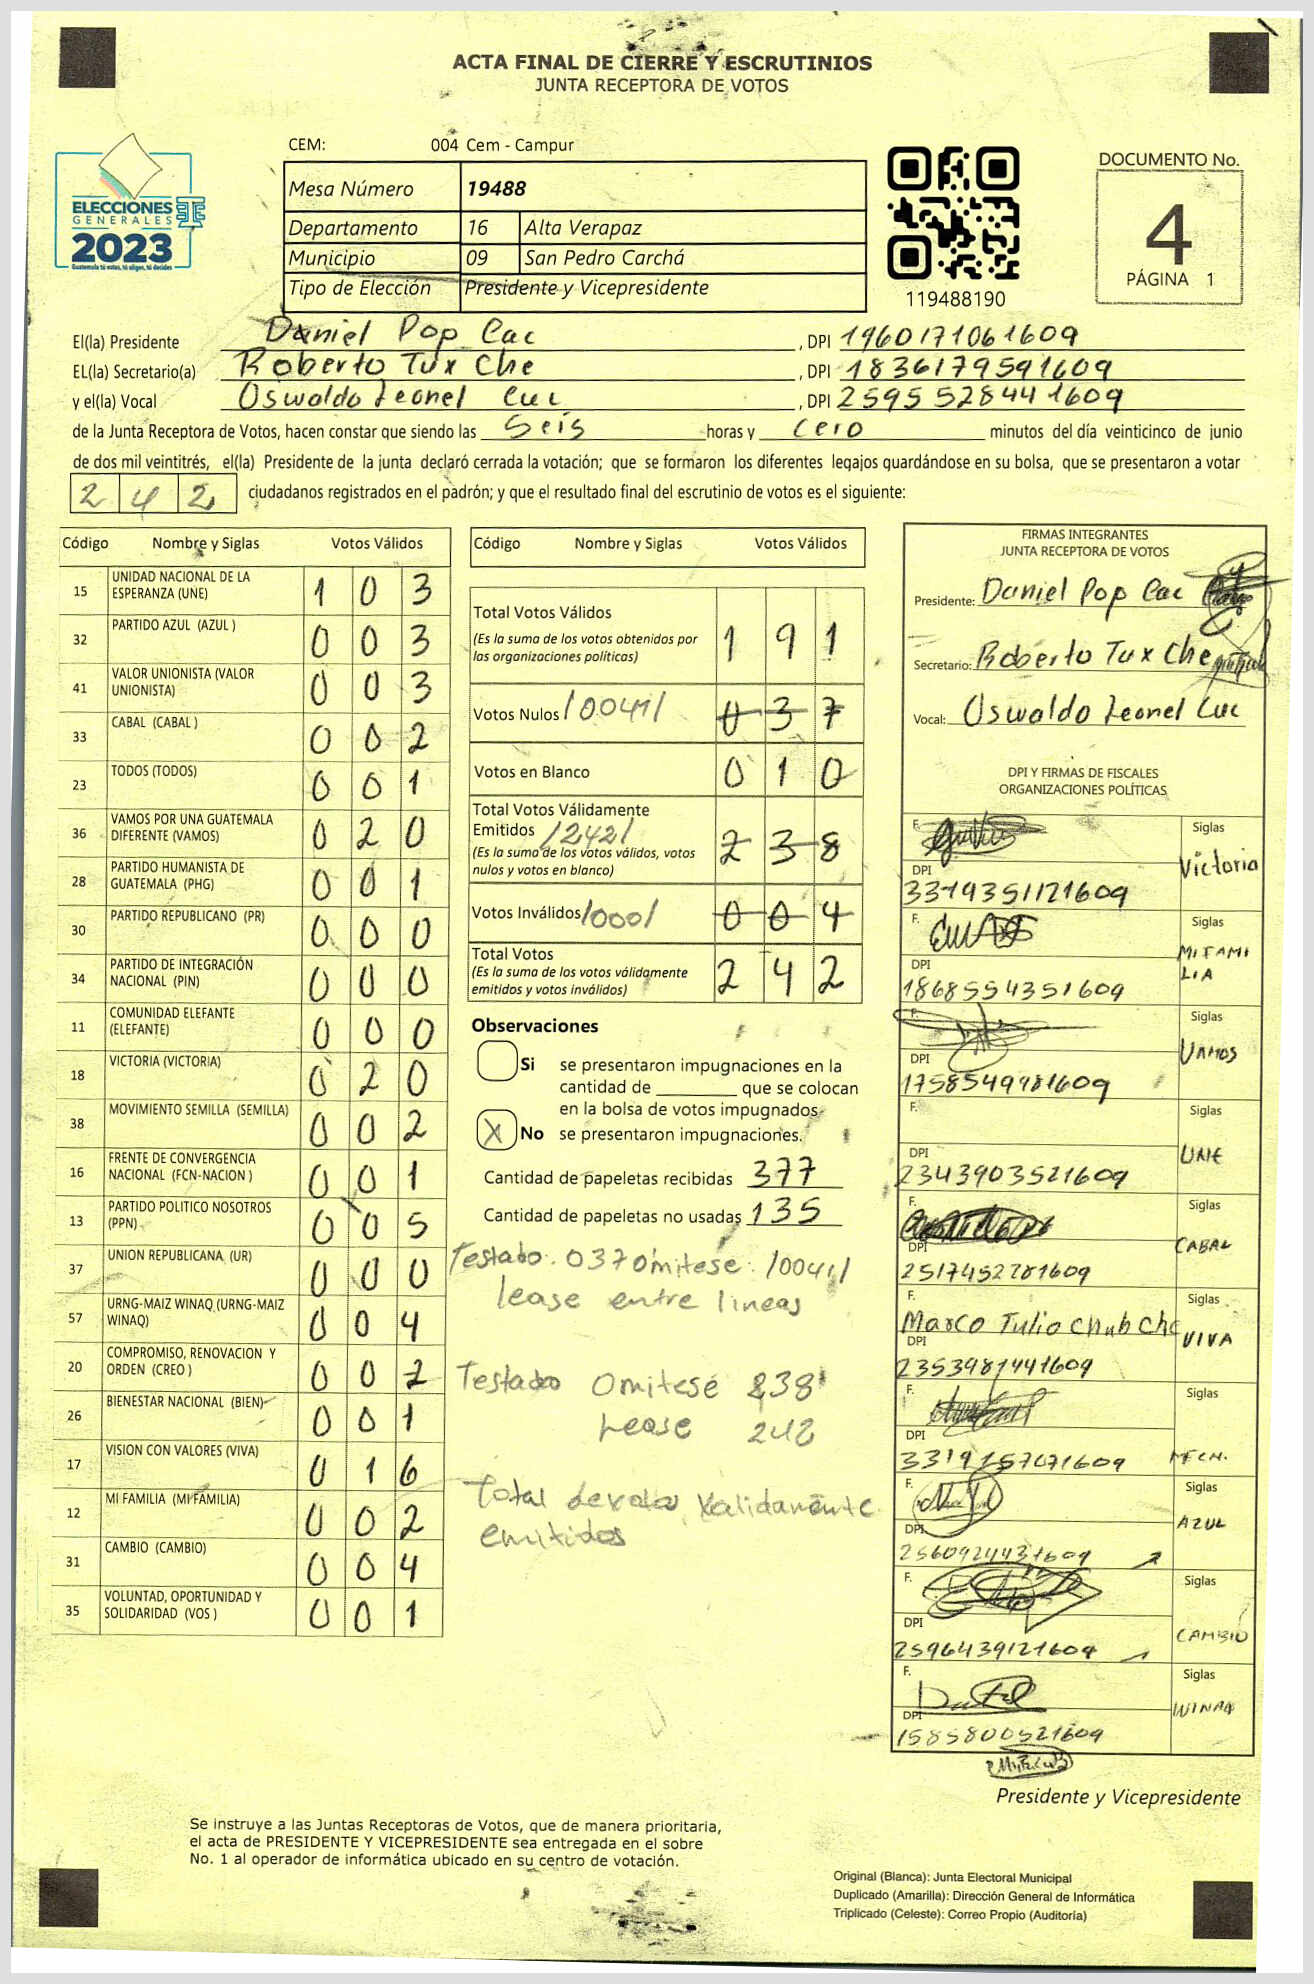 ACTA FINAL DE CIERRE Y ESCRUTINIOS
JUNTA RECEPTORA DE VOTOS
CEM: 004 Cem - Campur
ELECCIONES
GENERALES
2023
Guatemala tú votas, tú eliges, tú decides
Mesa Número 19488
Departamento 16 Alta Verapaz
Municipio 09 San Pedro Carchá
Tipo de Elección Presidente y Vicepresidente
119488190
DOCUMENTO No.
4
PÁGINA 1
El(la) Presidente Daniel Pop Cac , DPI 1960171061609
EL(la) Secretario(a) Roberto Tux Che , DPI 1836179591609
y el(la) Vocal Oswaldo Leonel Cuc , DPI 2595528441609
de la Junta Receptora de Votos, hacen constar que siendo las Seis horas y cero minutos del día veinticinco de junio
de dos mil veintitrés, el(la) Presidente de la junta declaró cerrada la votación; que se formaron los diferentes legajos guardándose en su bolsa, que se presentaron a votar
242 ciudadanos registrados en el padrón; y que el resultado final del escrutinio de votos es el siguiente:
Código Nombre y Siglas Votos Válidos
15 UNIDAD NACIONAL DE LA ESPERANZA (UNE) 1 0 3
32 PARTIDO AZUL (AZUL ) 0 0 3
41 VALOR UNIONISTA (VALOR UNIONISTA) 0 0 3
33 CABAL (CABAL ) 0 0 2
23 TODOS (TODOS) 0 0 1
36 VAMOS POR UNA GUATEMALA DIFERENTE (VAMOS) 0 2 0
28 PARTIDO HUMANISTA DE GUATEMALA (PHG) 0 0 1
30 PARTIDO REPUBLICANO (PR) 0 0 0
34 PARTIDO DE INTEGRACIÓN NACIONAL (PIN) 0 0 0
11 COMUNIDAD ELEFANTE (ELEFANTE) 0 0 0
18 VICTORIA (VICTORIA) 0 2 0
38 MOVIMIENTO SEMILLA (SEMILLA) 0 0 2
16 FRENTE DE CONVERGENCIA NACIONAL (FCN-NACION ) 0 0 1
13 PARTIDO POLITICO NOSOTROS (PPN) 0 0 5
37 UNION REPUBLICANA (UR) 0 0 0
57 URNG-MAIZ WINAQ (URNG-MAIZ WINAQ) 0 0 4
20 COMPROMISO, RENOVACION Y ORDEN (CREO ) 0 0 2
26 BIENESTAR NACIONAL (BIEN) 0 0 1
17 VISION CON VALORES (VIVA) 0 1 6
12 MI FAMILIA (MI FAMILIA) 0 0 2
31 CAMBIO (CAMBIO) 0 0 4
35 VOLUNTAD, OPORTUNIDAD Y SOLIDARIDAD (VOS ) 0 0 1
Código Nombre y Siglas Votos Válidos
Total Votos Válidos 1 9 1
(Es la suma de los votos obtenidos por
las organizaciones políticas)
Votos Nulos /0041/ 0 3 7
Votos en Blanco 0 1 0
Total Votos Válidamente
Emitidos /242/ 2 3 8
(Es la suma de los votos válidos, votos
nulos y votos en blanco)
Votos Inválidos /000/ 0 0 4
Total Votos 2 4 2
(Es la suma de los votos válidamente
emitidos y votos inválidos)
Observaciones
Si se presentaron impugnaciones en la
cantidad de ________ que se colocan
en la bolsa de votos impugnados
X No se presentaron impugnaciones.
Cantidad de papeletas recibidas 377
Cantidad de papeletas no usadas 135
Testado. 037 Omitese: /0041/
lease entre lineas
Testado Omitese 238
Lease 242
Total de votos Validamente
emitidos
FIRMAS INTEGRANTES
JUNTA RECEPTORA DE VOTOS
Presidente: Daniel Pop Cac
Secretario: Roberto Tux Che
Vocal: Oswaldo Leonel Cuc
DPI Y FIRMAS DE FISCALES
ORGANIZACIONES POLÍTICAS
F. Siglas
DPI Victoria
3319351121609
F. Siglas
DPI MI FAMI
LIA
1868554351609
F. Siglas
DPI VAMOS
1758549981609
F. Siglas
DPI UNE
2343903521609
F. Siglas
DPI CABAL
2517452281609
F. Siglas
Marco Tulio Chub Che VIVA
DPI
2353981441609
F. Siglas
DPI
F. Siglas
DPI AZUL
2560924431609
F. Siglas
DPI CAMBIO
2596439121609
F. Siglas
DPI WINAQ
1585800521609
Presidente y Vicepresidente
Se instruye a las Juntas Receptoras de Votos, que de manera prioritaria,
el acta de PRESIDENTE Y VICEPRESIDENTE sea entregada en el sobre
No. 1 al operador de informática ubicado en su centro de votación.
Original (Blanca): Junta Electoral Municipal
Duplicado (Amarilla): Dirección General de Informática
Triplicado (Celeste): Correo Propio (Auditoría)